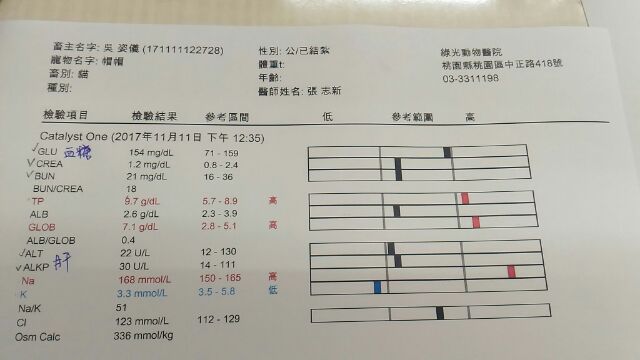 畜主名字: 吳 姿儀 (171111122728) 性別: 公/已結紮 綠光動物醫院
寵物名字: 帽帽 體重t: 桃園縣桃園區中正路418號
畜別: 貓 年齡: 03-3311198
種別: 醫師姓名: 張 志新
檢驗項目 檢驗結果 參考區間 低 參考範圍 高
Catalyst One (2017年11月11日 下午 12:35)
GLU 血糖 154 mg/dL 71 - 159
CREA 1.2 mg/dL 0.8 - 2.4
BUN 21 mg/dL 16 - 36
BUN/CREA 18
TP 9.7 g/dL 5.7 - 8.9 高
ALB 2.6 g/dL 2.3 - 3.9
GLOB 7.1 g/dL 2.8 - 5.1 高
ALB/GLOB 0.4
ALT 22 U/L 12 - 130
ALKP 肝 30 U/L 14 - 111
Na 168 mmol/L 150 - 165 高
K 3.3 mmol/L 3.5 - 5.8 低
Na/K 51
Cl 123 mmol/L 112 - 129
Osm Calc 336 mmol/kg